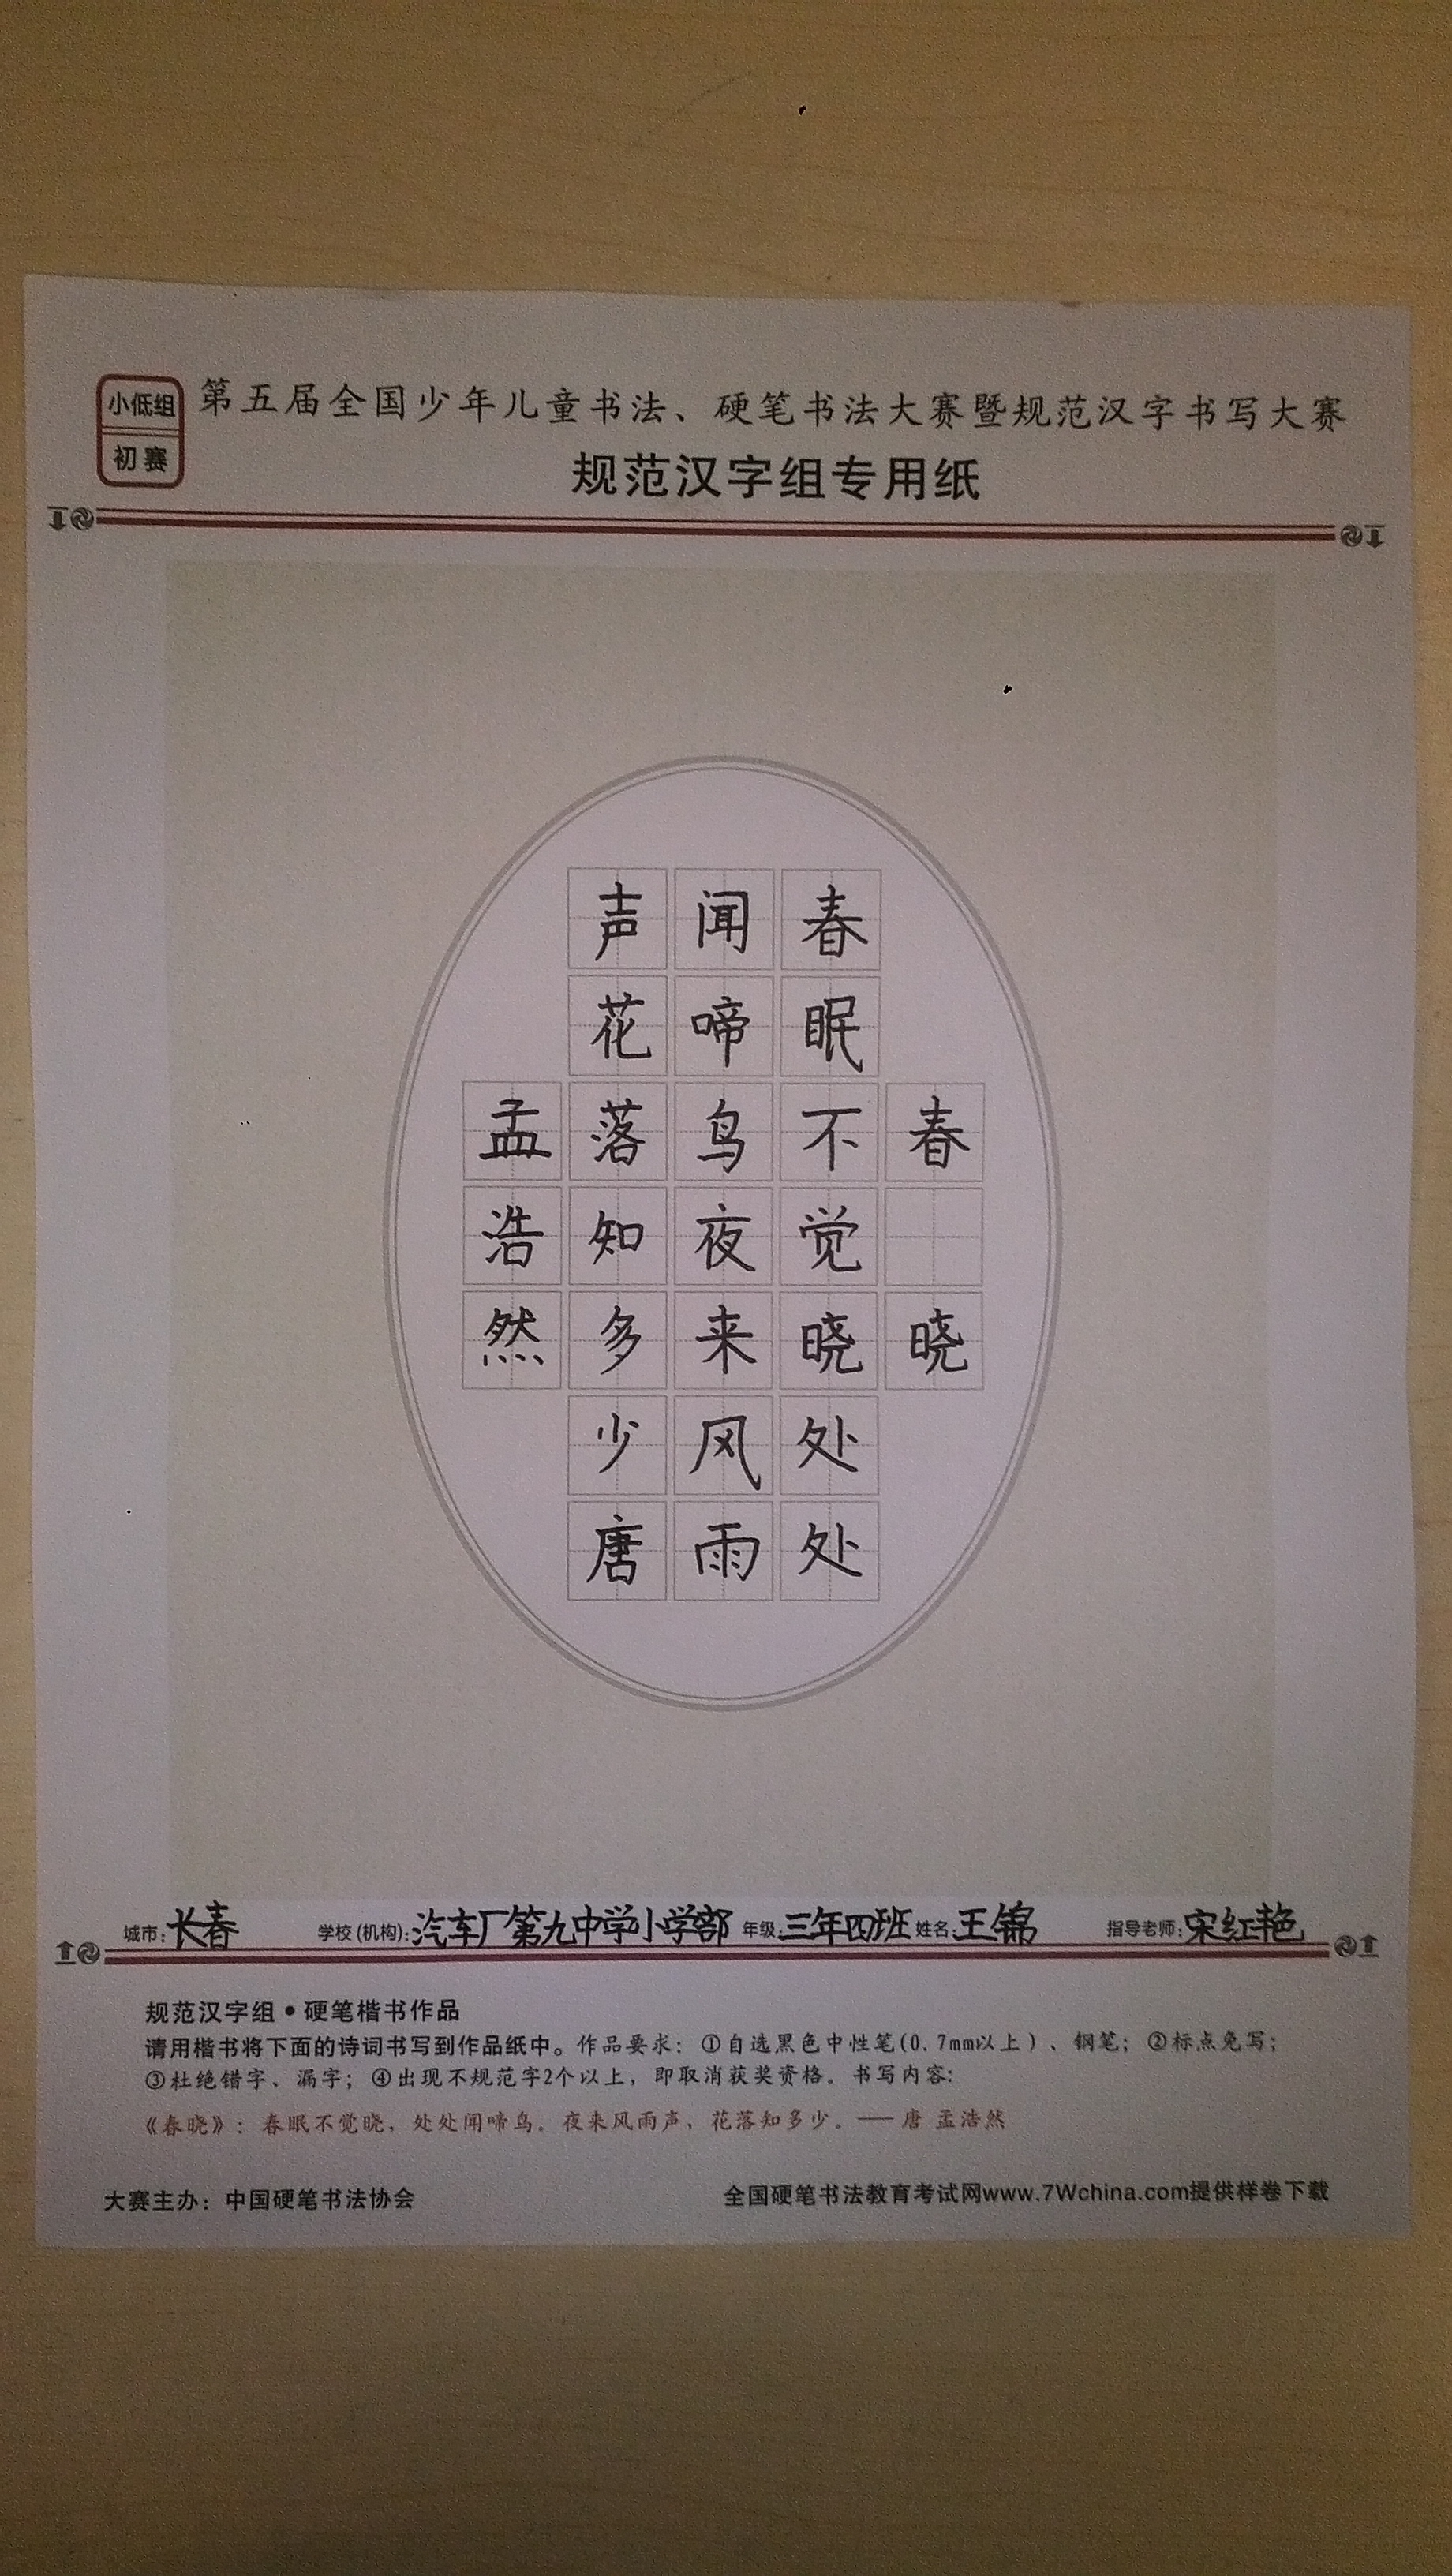 小低组
初赛
第五届全国少年儿童书法、硬笔书法大赛暨规范汉字书写大赛
规范汉字组专用纸
春晓
春眠不觉晓处处
闻啼鸟夜来风雨
声花落知多少唐
孟浩然
城市:长春 学校(机构):汽车厂第九中学小学部 年级:三年四班 姓名:王锦 指导老师:宋红艳
规范汉字组•硬笔楷书作品
请用楷书将下面的诗词书写到作品纸中。作品要求:①自选黑色中性笔(0.7mm以上)、钢笔;②标点免写;
③杜绝错字、漏字;④出现不规范字2个以上,即取消获奖资格。书写内容:
《春晓》:春眠不觉晓,处处闻啼鸟。夜来风雨声,花落知多少。——唐 孟浩然
大赛主办:中国硬笔书法协会 全国硬笔书法教育考试网www.7Wchina.com提供样卷下载